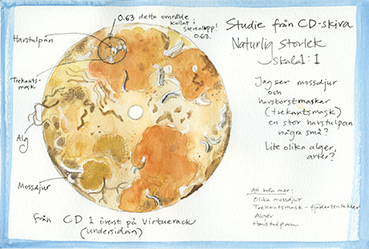 0.63 detta område
kollat i
stereolupp!
0.63.
Havstulpan
Trekants-
mask
Alg
Mossdjur
Från CD 1 överst på Virtuerack
(undersidan)
Studie från CD-skiva
Naturlig storlek
skala 1:1
Jag ser mossdjur
och
havsborstmaskar
(trekantsmask)
en stor havstulpan
några små?
Lite olika alger,
arter?
Att kolla mer:
Olika mossdjur
Trekantsmask -
Alger
Havstulpan